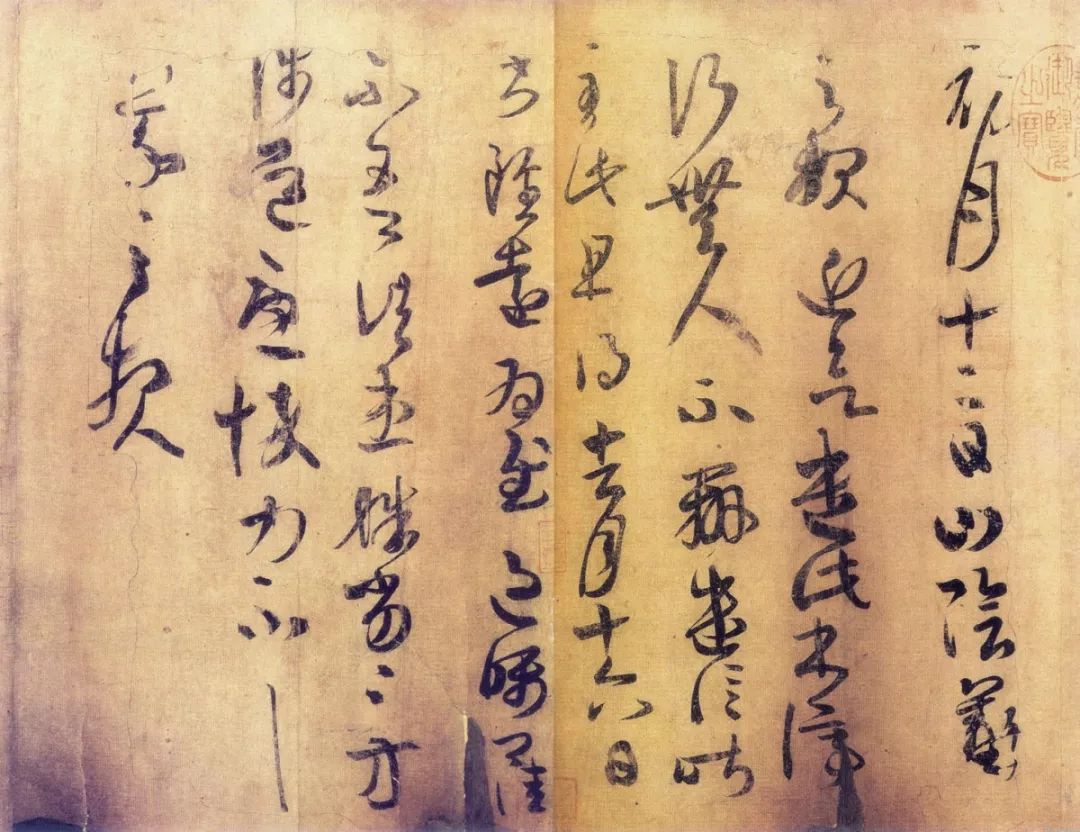 初月十二日山陰羲
之報近欲遣此書停
行無人不辦遣信昨
至此且得去月十六日
書雖遠為慰過囑
不吾諸患殊劣〻方
涉道憂悴力不具
羲之報
御覽之寶